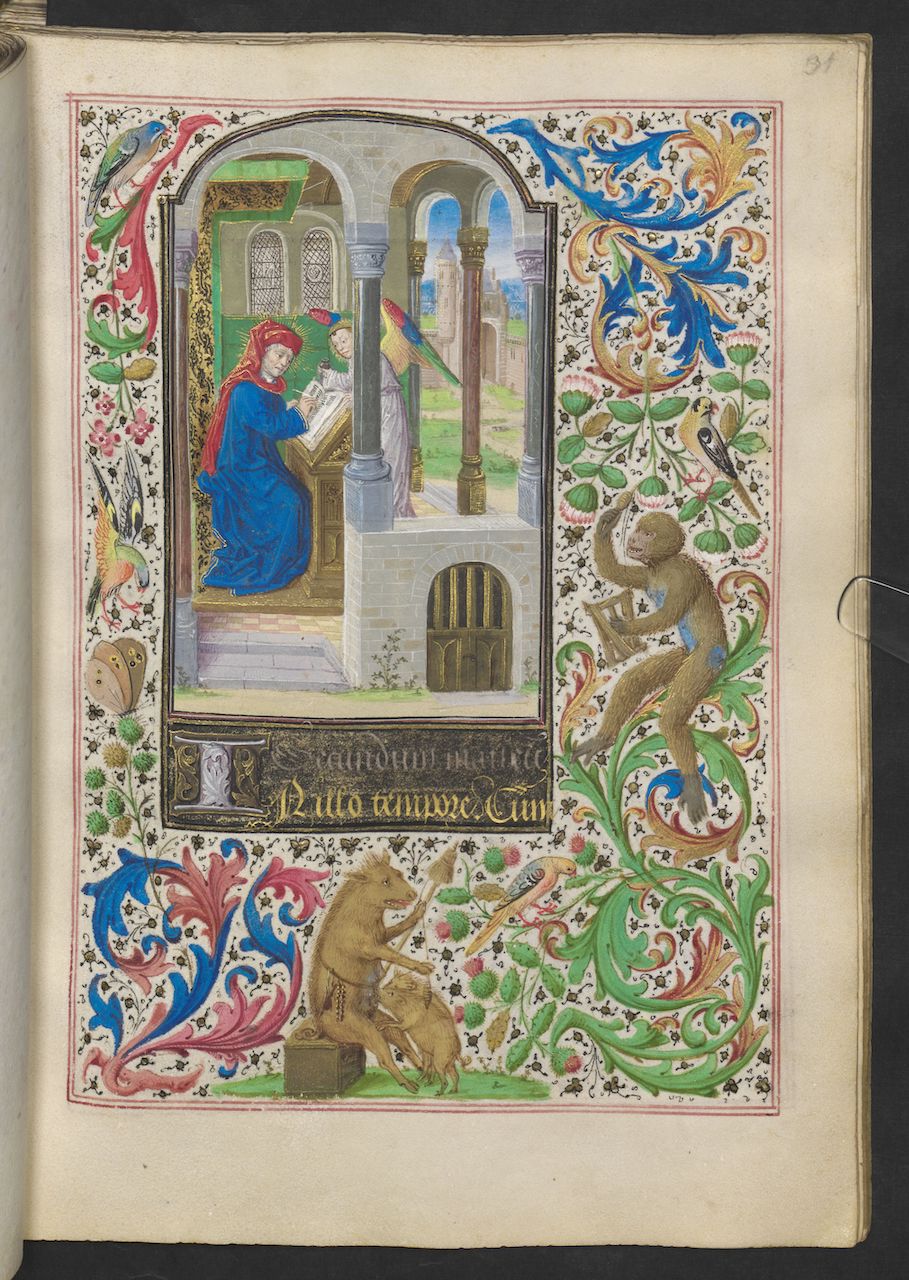 91
Secundum matheu
IN illo tempore. Cum